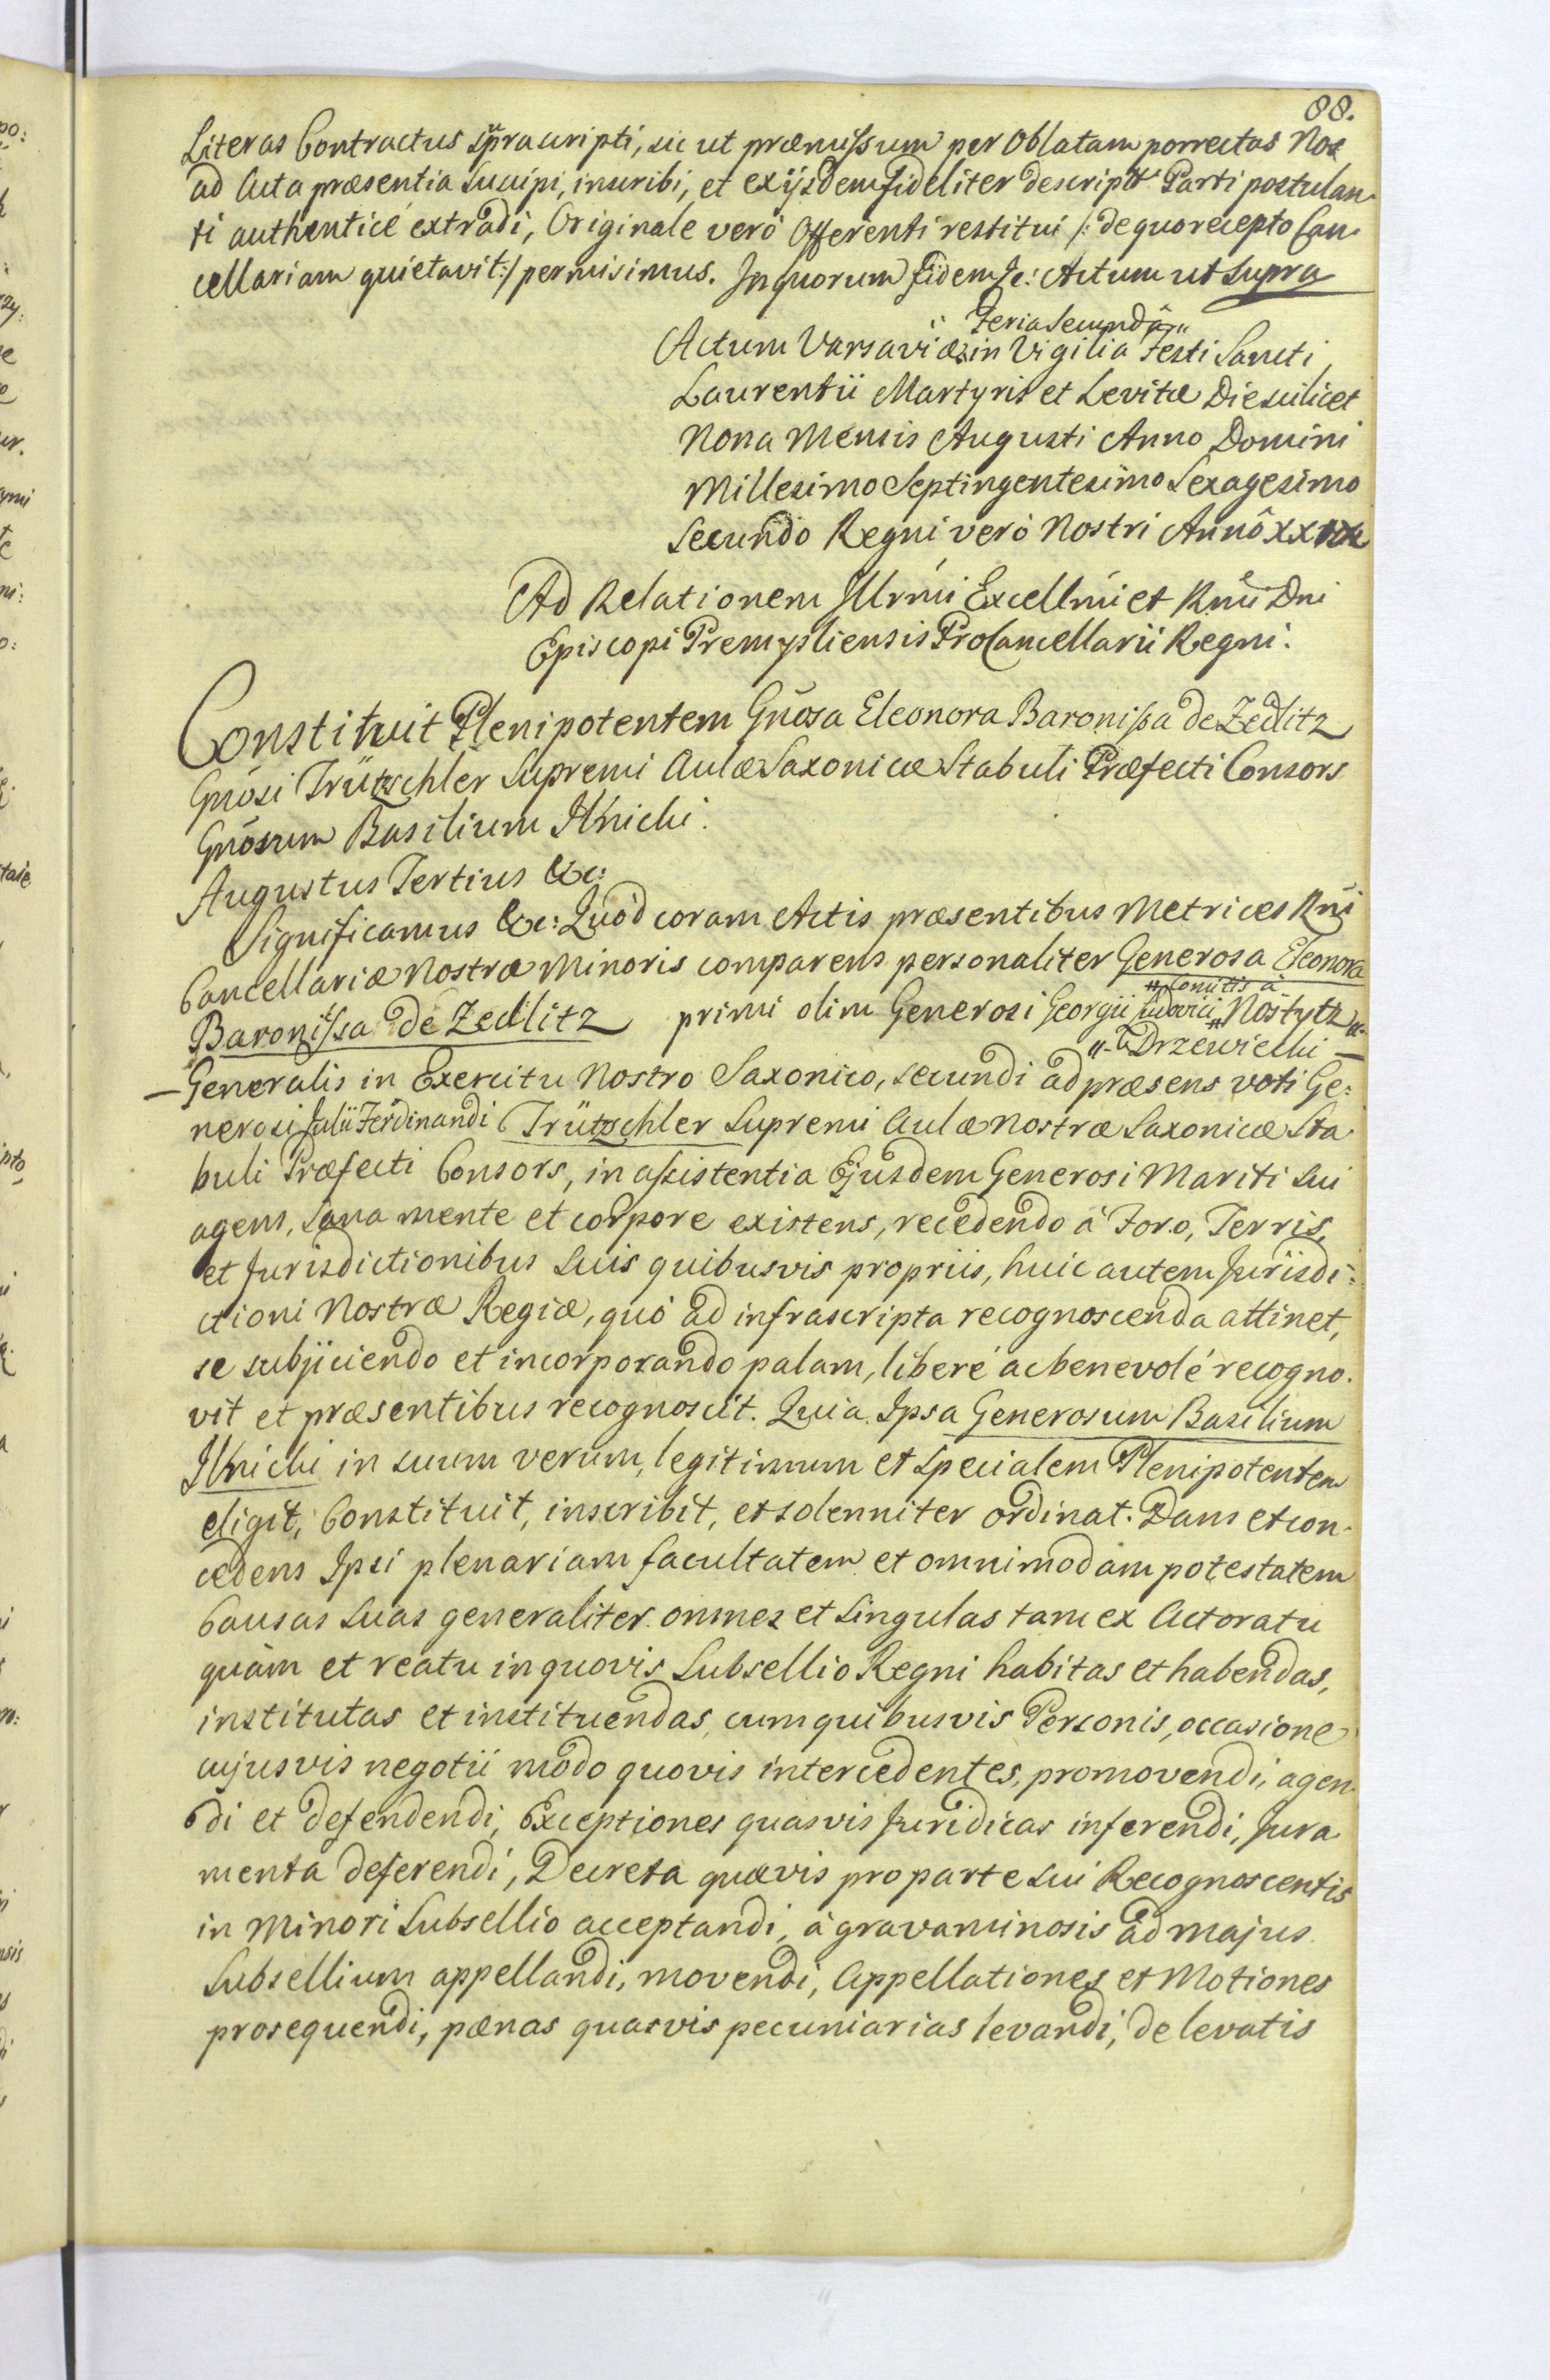 88.
Literas Contractus suprascripti, sic ut præmissum per Oblatam porrectas Nos
ad Acta præsentia suscipi, inscribi, et exijsdem fideliter descript: Parti postulan-
ti authenticé extradi, Originale veró Offerenti restitui /: de quo recepto Can-
cellariam quietavit :/ permisimus. In quorum fidem &c: Actum ut supra
Feria Secundâ
Actum Varsaviæ in Vigilia Festi Sancti
Laurentii Martyris et Levitæ Die scilicet
Nona Mensis Augusti Anno Domini
Millesimo Septingentesimo Sexagesimo
Secundo Regni veró Nostri Annô XXIX
Ad Relationem Illrmi Excellmi et Rndi Dni
Episcopi Premysliensis ProCancellarii Regni.
Constituit Plenipotentem Gnosa Eleonora Baronissa de Zedlitz
Gnosi Trützschler Supremi Aulæ Saxonicæ Stabuli Præfecti Consors
Gnosum Basilium Ilnicki.
Augustus Tertius &c:
Significamus &c: Quód coram Actis præsentibus Metrices Rni
Cancellariæ Nostræ Minoris comparens personaliter Generosa Eleonora
Comitis à
Baronissa de Zedlitz primi olim Generosi Georgii Ludovici Nostytz
à Drzewiecki
Generalis in Exercitu Nostro Saxonico, secundi ad præsens voti Ge:
nerosi Julii Ferdinandi Trützschler Supremi Aulæ Nostræ Saxonicæ Sta
buli Præfecti Consors, in assistentia Ejusdem Generosi Mariti sui
agens, sana mente et corpore existens, recedendo á Foro, Terris,
et Jurisdictionibus suis quibusvis propriis, huic autem Jurisdi:
ctioni Nostræ Regiæ, quó ad infrascripta recognoscenda attinet,
se subjiciendo et incorporando palam, liberé ac benevolé recogno-
vit et præsentibus recognoscit. Quia Ipsa Generosum Basilium
Ilnicki in suum verum, legitimum et specialem Plenipotentem
eligit, constituit, inscribit, et solenniter ordinat. Dans et con-
cedens Ipsi plenariam facultatem et omnimodam potestatem
Causas suas generaliter omnes et singulas tam ex Actoratu
quám et reatu in quovis Subsellio Regni habitas et habendas,
institutas et instituendas, cum quibusvis Personis, occasione
cujusvis negotii modo quovis intercedentes, promovendi, agen-
di et defendendi, Exceptiones quasvis Juridicas inferendi, Jura
menta deferendi, Decreta quævis pro parte sui Recognoscentis
in Minori Subsellio acceptandi, á gravaminosis ad majus
Subsellium appellandi, movendi, Appellationes et Motiones
prosequendi, pænas quasvis pecuniarias levandi, de levatis